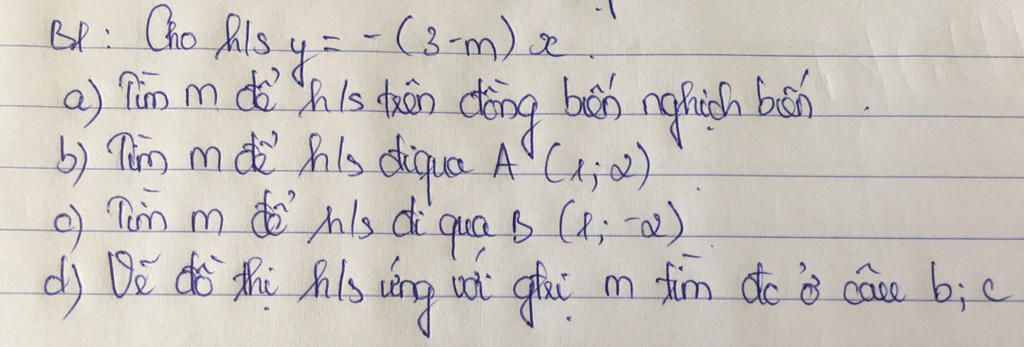 B1: Cho h/s y = -(3-m)x.
a) Tìm m để h/s trên đồng biến nghịch biến.
b) Tìm m để h/s đi qua A (1;2)
c) Tìm m để h/s đi qua B (1;-2)
d) Vẽ đồ thị h/s ứng với gtrị m tìm đc ở câu b; c